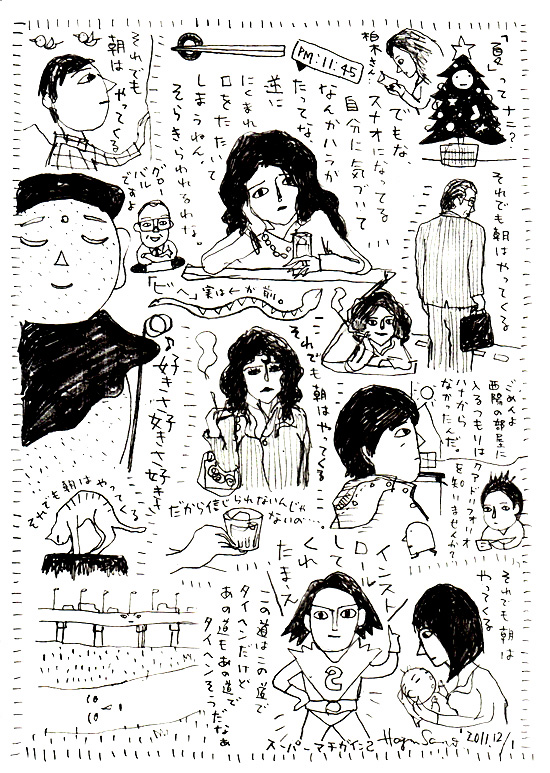 それでも
朝は
やってくる
PM:11:45
「夏」ってナニ?
柏木さん
でもな、
スナオになってる
自分に気づいて
なんかハラが
たってな
逆に
にくまれ
口をたたいて
しまうねん
そらきらわれるわな。
グロー
バル
ですよ
それでも朝はやってくる
「ビ〜」実はくが前。
それでも朝はやってくる
♪好きさ好きさ好きさ
ごめんよ
西陽の部屋に
入るつもりは
ハナから
なかったんだ。
クアドリフォリオ
を知りませんか?
だから信じられないんじゃ
ないの…
それでも朝はやってくる
インスト
ール
して
くれ
たまえ
それでも朝は
やってくる
この道はこの道で
タイヘンだけど
あの道もあの道で
タイヘンそうだなぁ
スーパーマチガイ
2011.12/1